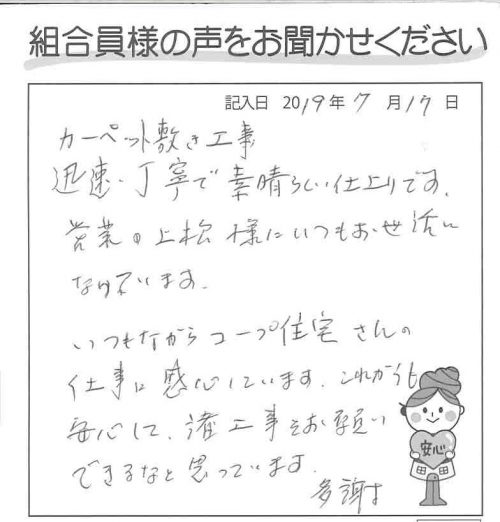 組合員様の声をお聞かせください
記入日 2019年 7 月 17 日
カーペット敷き工事
迅速・丁寧で素晴らしい仕上りです。
営業の上松様にいつもお世話に
なっています。
いつもながらコープ住宅さんの
仕事に感心しています。これからも
安心して、諸工事をお願い
できるなと思っています。
多謝!!
安心